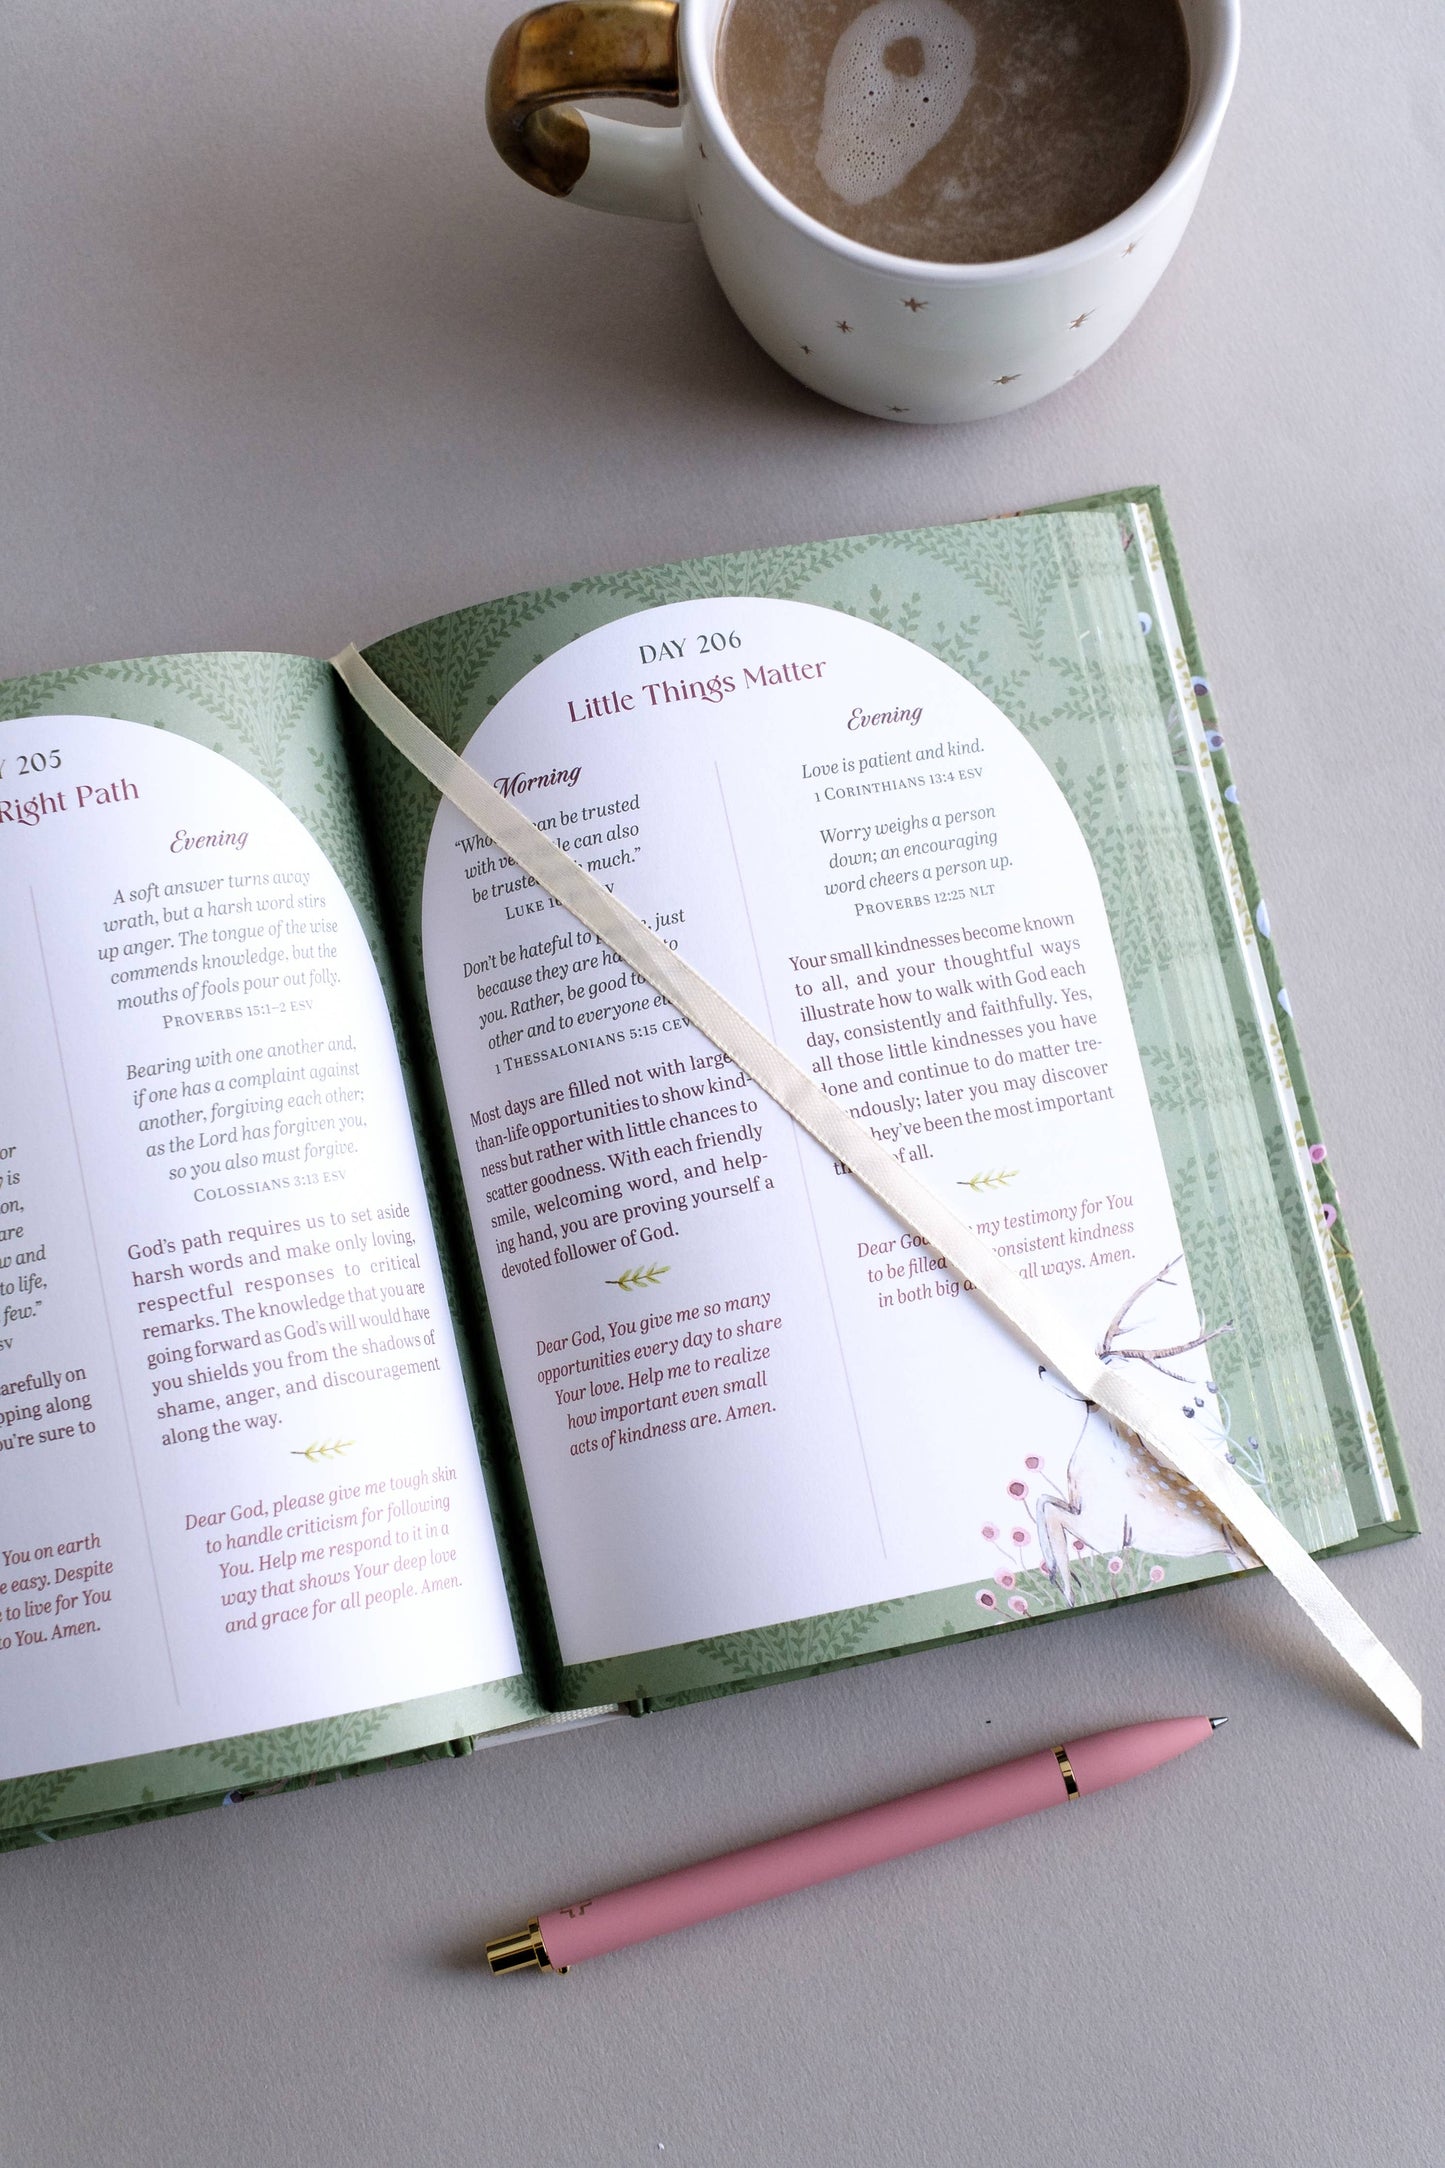 205
Right Path
or
is
on,
are
and
to life,
few.”
arefully on
pping along
u’re sure to
You on earth
e easy. Despite
to live for You
to You. Amen.
Evening
A soft answer turns away
wrath, but a harsh word stirs
up anger. The tongue of the wise
commends knowledge, but the
mouths of fools pour out folly.
PROVERBS 15:1–2 ESV
Bearing with one another and,
if one has a complaint against
another, forgiving each other;
as the Lord has forgiven you,
so you also must forgive.
COLOSSIANS 3:13 ESV
God’s path requires us to set aside
harsh words and make only loving,
respectful responses to critical
remarks. The knowledge that you are
going forward as God’s will would have
you shields you from the shadows of
shame, anger, and discouragement
along the way.
Dear God, please give me tough skin
to handle criticism for following
You. Help me respond to it in a
way that shows Your deep love
and grace for all people. Amen.
DAY 206
Little Things Matter
Morning
“Who can be trusted
with ve le can also
be truste much.”
LUKE
Don’t be hateful to just
because they are ha to
you. Rather, be good to
other and to everyone el
1 THESSALONIANS 5:15 CEV
Most days are filled not with larger-
than-life opportunities to show kind-
ness but rather with little chances to
scatter goodness. With each friendly
smile, welcoming word, and help-
ing hand, you are proving yourself a
devoted follower of God.
Dear God, You give me so many
opportunities every day to share
Your love. Help me to realize
how important even small
acts of kindness are. Amen.
Evening
Love is patient and kind.
1 CORINTHIANS 13:4 ESV
Worry weighs a person
down; an encouraging
word cheers a person up.
PROVERBS 12:25 NLT
Your small kindnesses become known
to all, and your thoughtful ways
illustrate how to walk with God each
day, consistently and faithfully. Yes,
all those little kindnesses you have
done and continue to do matter tre-
endously; later you may discover
hey’ve been the most important
of all.
Dear God my testimony for You
to be filled consistent kindness
in both big a all ways. Amen.